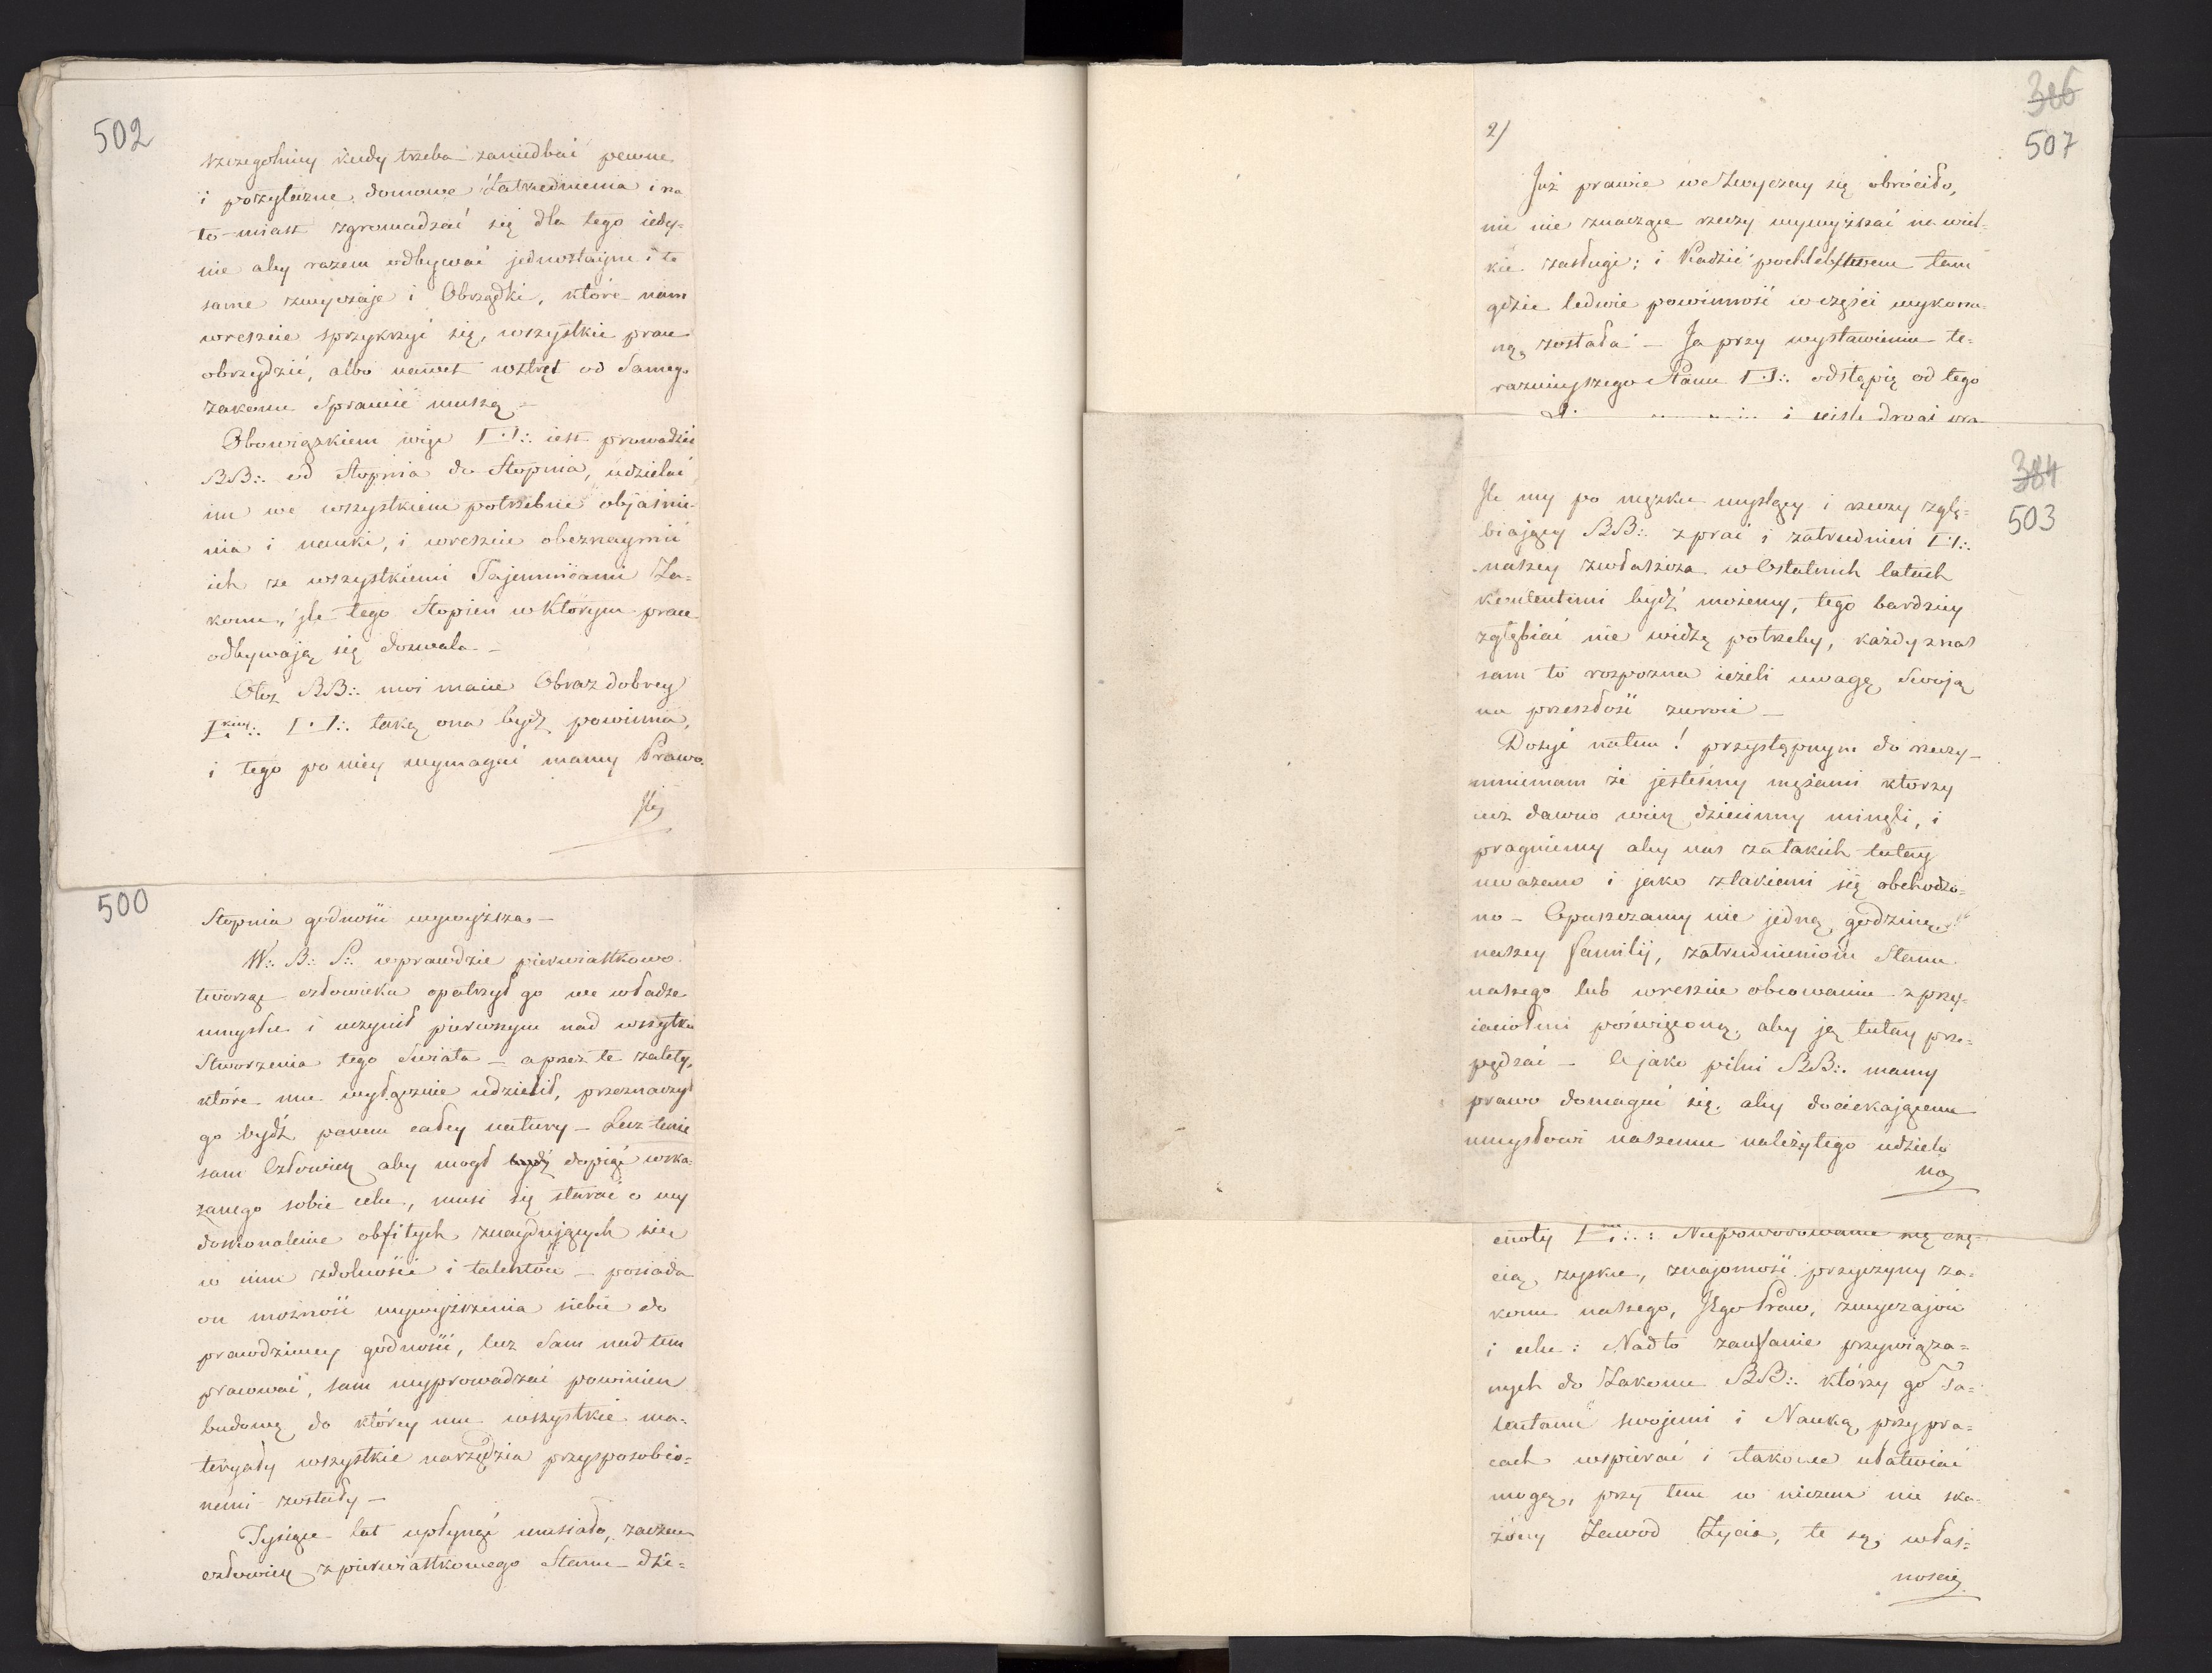 502
szczegolniey kiedy trzeba zaniedbać pewne
i pożyteczne domowe Zatrudnienia i na
to-miast zgromadzać się dla tego iedy=
nie aby razem odbywać jednostayne i te
same zwyczaje i Obrządki, które nam
wreszcie sprzykrzyć się, wszystkie prace
obrzydzić, albo nawet wstręt od Samego
zakonu Sprawić muszą –
Obowiązkiem więc iest prowadzić
BB∴ od Stopnia do Stopnia, udzielać
im we wszystkiem potrzebne objaśnie-
nia i nauki, i wreszcie obeznaymić
ich ze wszystkiemi Tajemnicami Za=
konu, jle tego Stopień w którym prace
odbywają się dozwala –
Otoż BB∴ moi macie Obraz dobrey
taką ona bydź powinna,
i tego po niey wymagać mamy Prawo.
Jle
500
Stopnia godności wywyższa –
W∴ B∴ S∴ wprawdzie pierwiastkowo
tworząc człowieka opatrzył go we władze
umysłu i uczynił pierwszym nad wszystkie
Stworzenia tego Świata – a przez te zalety,
które mu wyłącznie udzielił, przeznaczył
go bydź panem całey natury – Lecz tenie
sam Człowiek aby mogł bydź dopiąć wska-
zanego sobie celu, musi się starać o wy
doskonalenie obfitych znaydujących się
w nim zdolności i talentów – posiada
on możność wywyższenia siebie do
prawdziwey godności, lecz Sam nad tem
pracować, sam wyprowadzać powinien
budowę do którey mu wszystkie ma-
teryały wszystkie narzędzia przysposobio=
nemi zostały –
Tysiące lat upłynąć musiało, zaczem
człowiek z pierwiastkowego Stanu – dzi=
306
507
2/
Już prawie we Zwyczay się obróciło,
nic nie znaczące rzeczy wywyższać na wiel-
kie zasługi; i Kadzić pochlebstwem tam
gdzie ledwie powinność w części wykona-
ną została – Ja przy wystawieniu te=
raznieyszego Stanu odstąpię od tego
i ciste drogi
384
503
Jle my po męzku myślący i rzeczy zglę=
biający BB∴ z prac i zatrudnień
naszey zwłaszcza w Ostatnich latach
kontentemi bydź możemy, tego bardziey
zglębiać nie widzę potrzeby, każdy z nas
sam to rozpozna ieżeli uwagę Swoją
na przeszłość zwroci –
Dosyć natem! przystąpmy do rzeczy –
mniemam że jesteśmy mężami ktorzy
iuż dawno wiek dziecinny minęli, i
pragniemy aby nas za takich tutay
uważano i jako z takiemi się obchodzo-
no – Opuszczamy nie jedną godzinę
naszey familij, zatrudnieniom Stanu
naszego lub wreszcie obcowaniu z przy-
iaciołmi poświęconą, aby ją tutay prze-
pędzać – A jako pilni BB∴ mamy
prawo domagać się, aby dociekającemu
umysłowi naszemu należytego udziela
no
cnoty : Niepowodowanie się chę-
cią zysku, znajomość przyczyny za-
konu naszego, Jego Praw, zwyczajów
i celu: Nadto zaufanie przywiąza=
nych do Zakonu BB∴ którzy go Ta-
lentami swojemi i Nauką przy pra=
cach wspierać i takowe ułatwiać
mogą, przy tem w niczem nie ska-
żony Zawod Życia, te są własz=
nosci